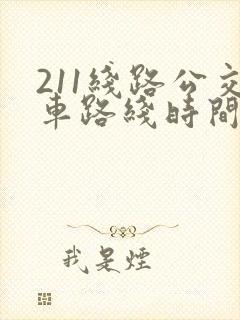 211綫路公交
車路綫時間
我是煙